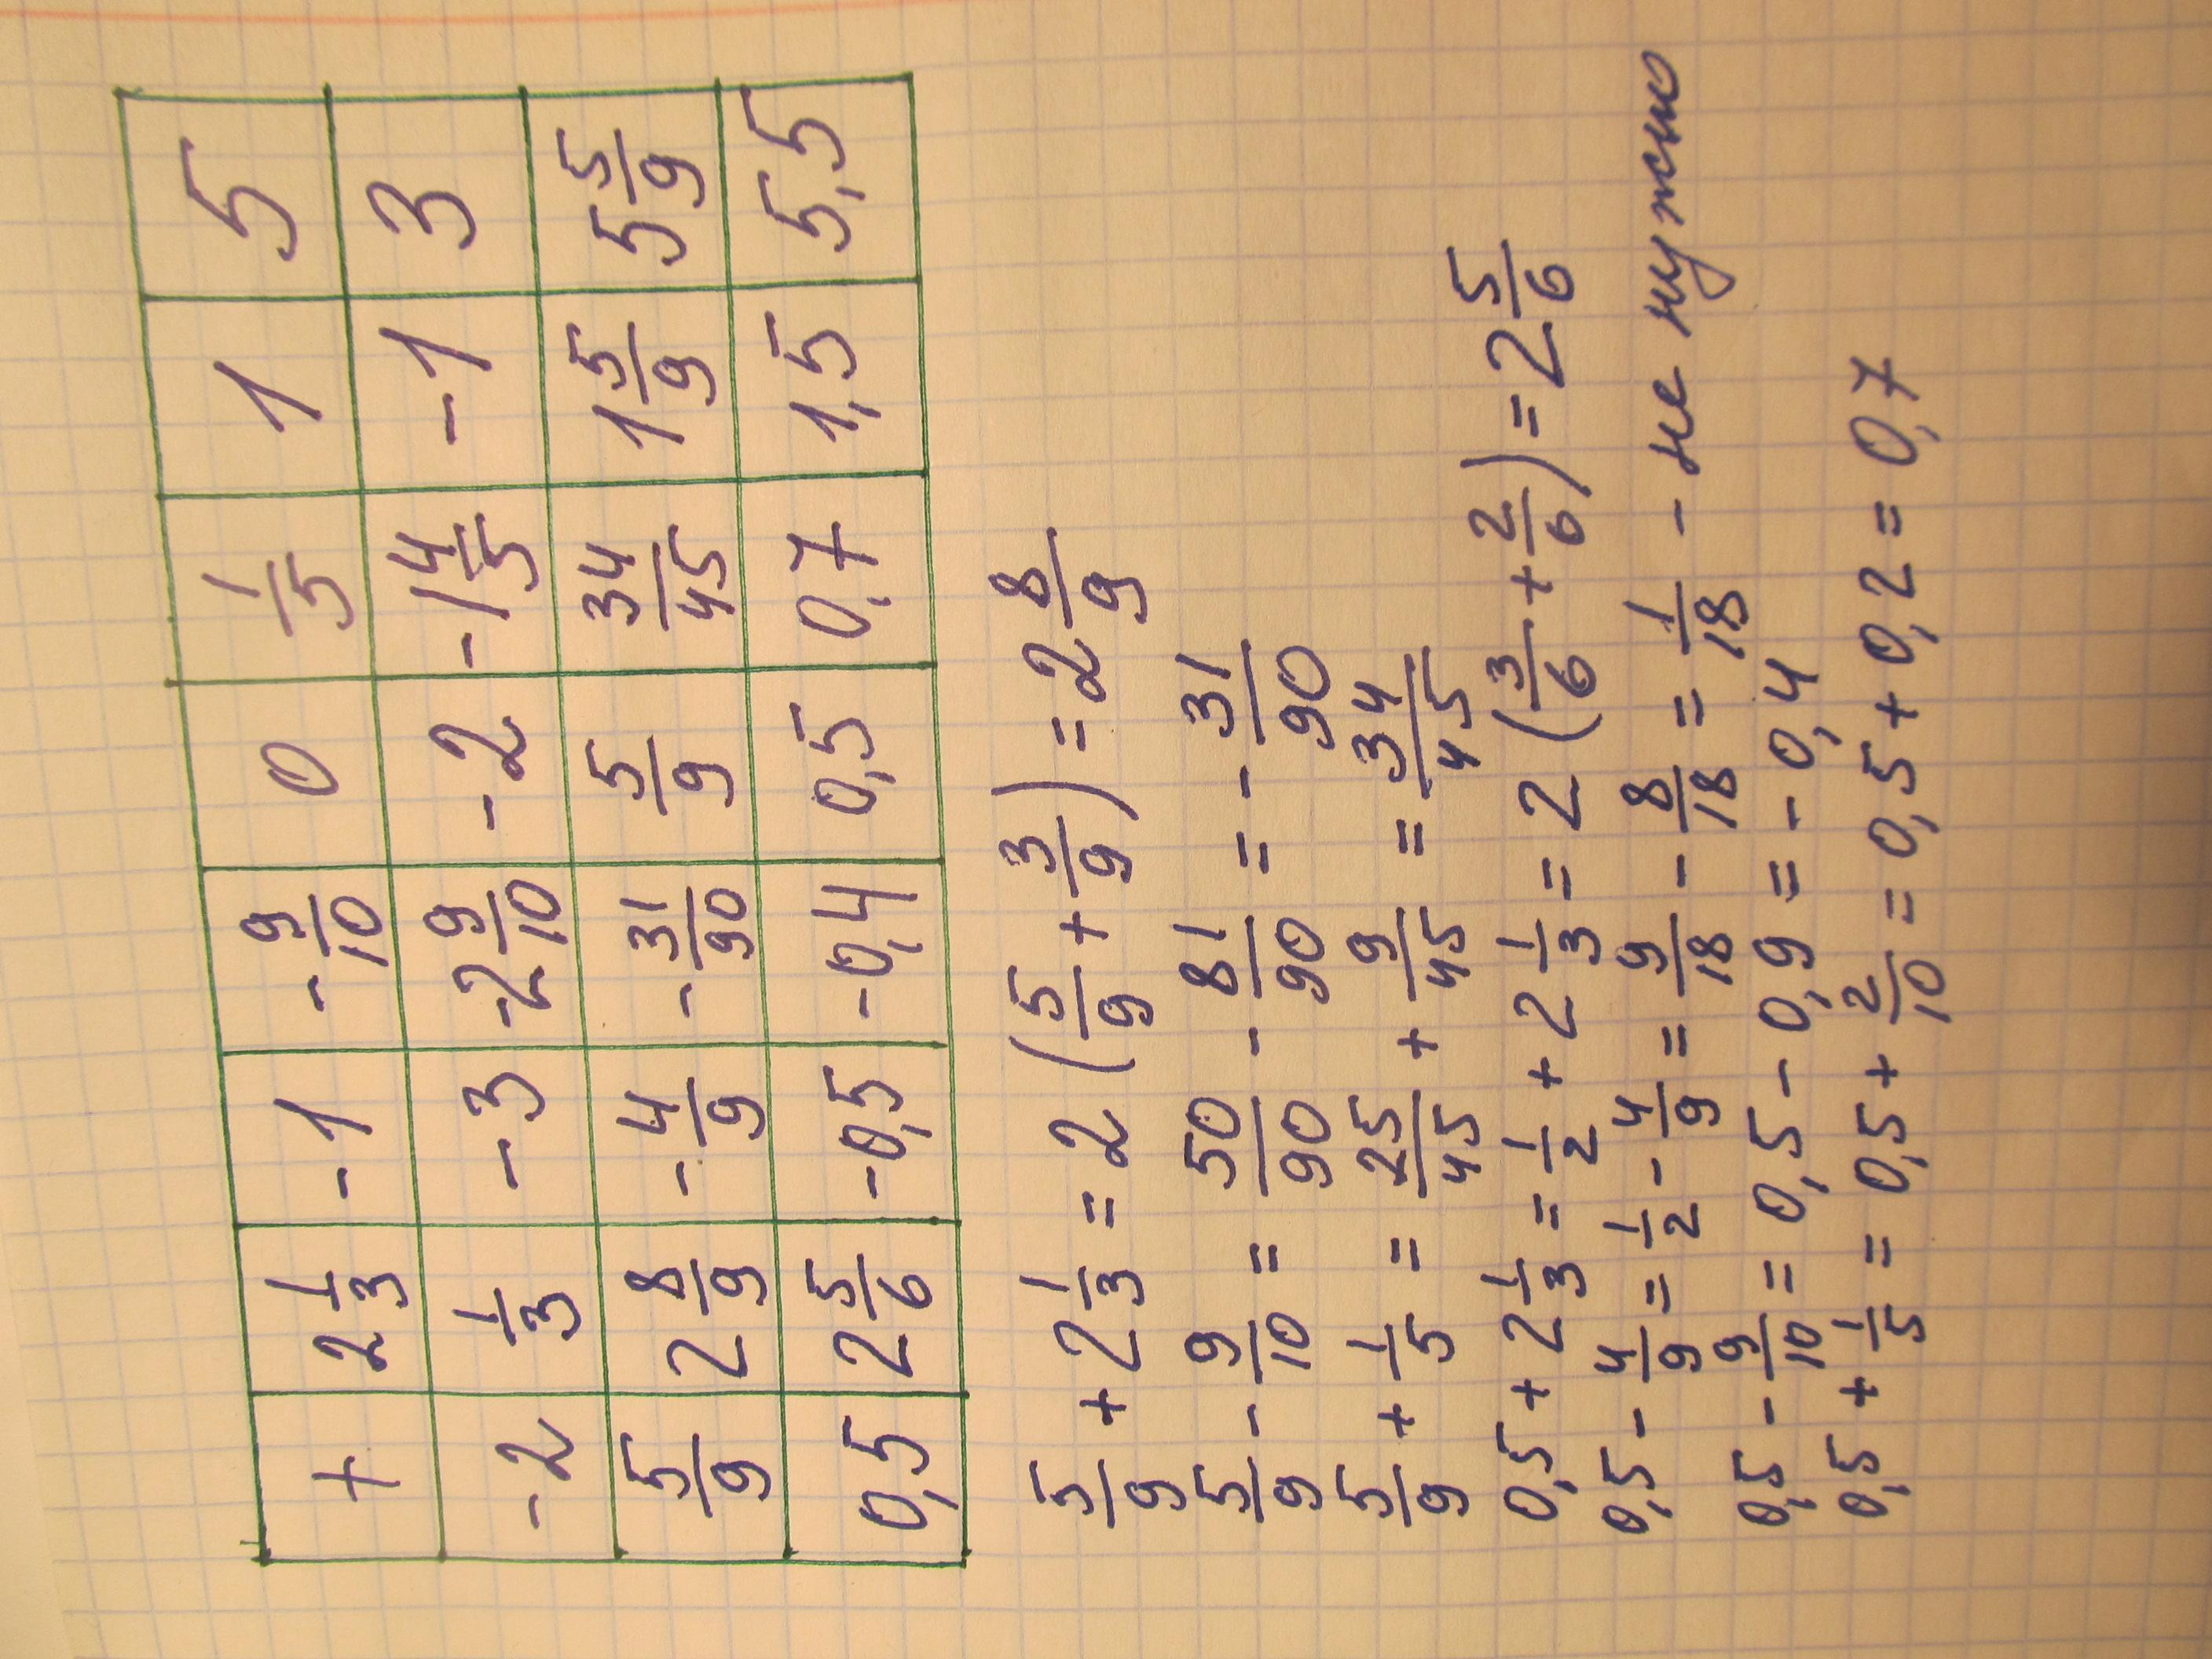 + 2 1/3 -1 -9/10 0 1/5 1 5
-2 1/3 -3 -2 9/10 -2 -1 4/5 -1 3
5/9 2 8/9 -4/9 -31/90 5/9 34/45 1 5/9 5 5/9
0,5 2 5/6 -0,5 -0,4 0,5 0,7 1,5 5,5
5/9 + 2 1/3 = 2 (5/9 + 3/9) = 2 8/9
5/9 - 9/10 = 50/90 - 81/90 = - 31/90
5/9 + 1/5 = 25/45 + 9/45 = 34/45
0,5 + 2 1/3 = 1/2 + 2 1/3 = 2 (3/6 + 2/6) = 2 5/6
0,5 - 4/9 = 1/2 - 4/9 = 9/18 - 8/18 = 1/18 - не нужно
0,5 - 9/10 = 0,5 - 0,9 = - 0,4
0,5 + 1/5 = 0,5 + 2/10 = 0,5 + 0,2 = 0,7